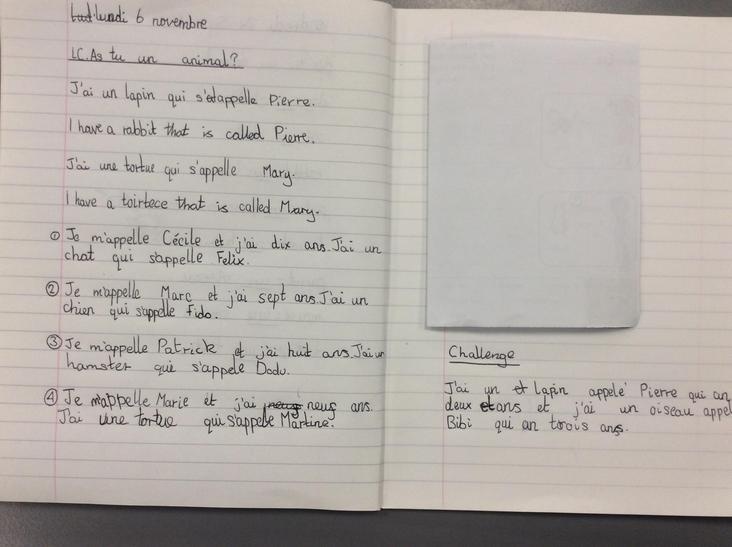 lundi 6 novembre
LC. As tu un animal?
J'ai un lapin qui s'appelle Pierre.
I have a rabbit that is called Pierre.
J'ai une tortue qui s'appelle Mary.
I have a toirtece that is called Mary.
① Je m'appelle Cécile et j'ai dix ans. J'ai un
chat qui s'appelle Felix.
② Je m'appelle Marc et j'ai sept ans. J'ai un
chien qui s'appelle Fido.
③ Je m'appelle Patrick et j'ai huit ans. J'ai un
hamster qui s'appele Dodu.
④ Je m'appelle Marie et j'ai neug neug ans.
J'ai une tortue qui s'appelle Martine.
Challenge
J'ai un et lapin appelé Pierre qui an
deux et ans et j'ai un oiseau appel
Bibi qui an trois ans.